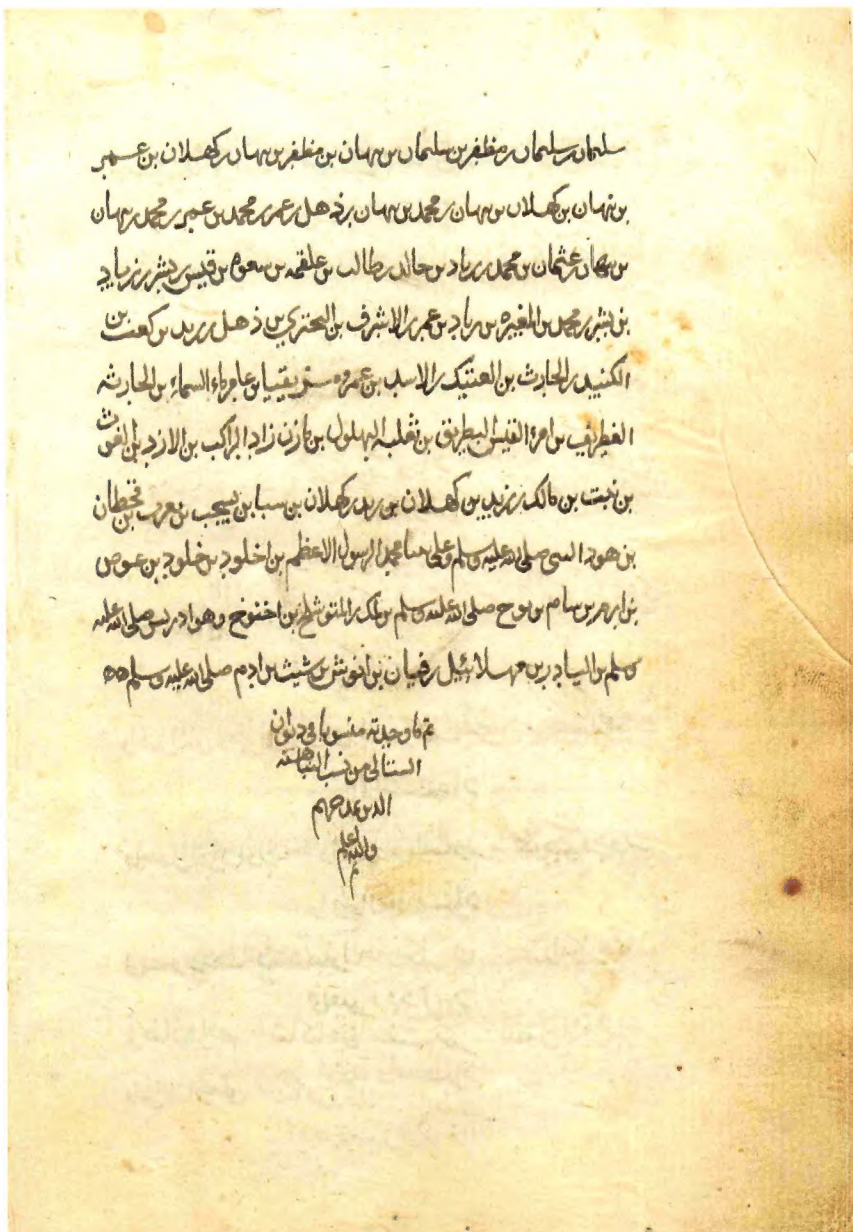 سليمان بن سليمان بن مظفر بن سلیمان بن نبهان بن مظفر بن نبهان بن كهلان بن عمر
بن نبهان بن كهلان بن نبهان بن محمد بن نبهان بن ذهل بن عمر بن محمد بن عمر بن محمد بن نبهان
بن نبهان بن عثمان بن محمد بن زياد بن خالد بن طالب بن علقمه بن معوه بن قيس بن بشر بن زياد
بن بشر بن محمد بن المغيره بن زياد بن عمر بن الاشرف بن البختري بن ذهل بن زيد بن كعب بن
الكنيد بن الحارث بن العتيك بن الاسد بن عمرو بن عامر ماء السماء بن الحارثه
الغطريف بن امرء القيس البطريق بن ثعلبه البهلول بن مازن زاد الراكب بن الازد بن الغوث
بن نبت بن مالك بن زيد بن كهلان بن زيد بن كهلان بن سبا بن يسجب بن يعرب بن قحطان
بن هود النبي صلى الله عليه وسلم وعلى محمد الرسول الاعظم بن اخلود بن خلود بن عوص
بن ارم بن سام بن نوح صلى الله عليه وسلم بن لمك بن المتوشلخ بن اخنوخ وهو ادريس صلى الله عليه
وسلم بن اليادر بن مهلائيل بن قيان بن انوش بن شيث بن ادم صلى الله عليه وسلم
تم ما وجدته منسوبا في ديوان
الستالي من نسب النباهنه
الذين مدحهم
والله اعلم
تم